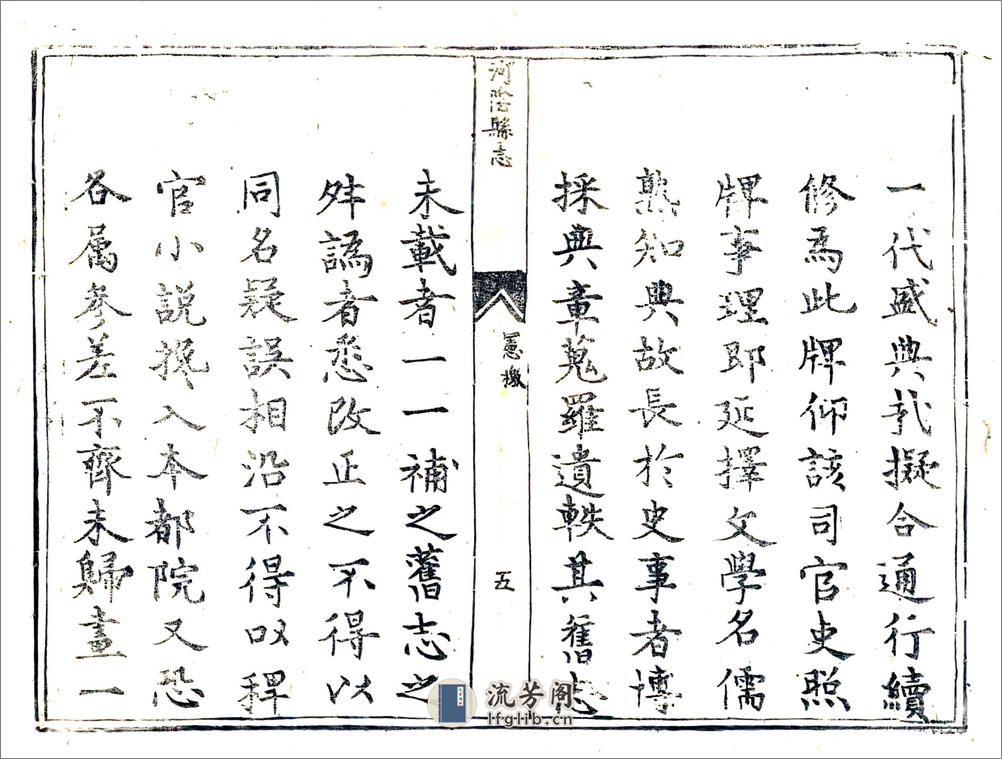 一代盛典哉擬合通行續
修爲此牌仰該司官吏照
牌事理即延擇文學名儒
熟知典故長於史事者博
採典章蒐羅遺軼其舊志
河陰縣志
憲檄
五
未載者一一補之舊志之
舛譌者悉改正之不得以
同名疑誤相沿不得以稗
官小說攙入本都院又恐
各属參差不齊未歸畫一
流芳阁
lfglib.cn